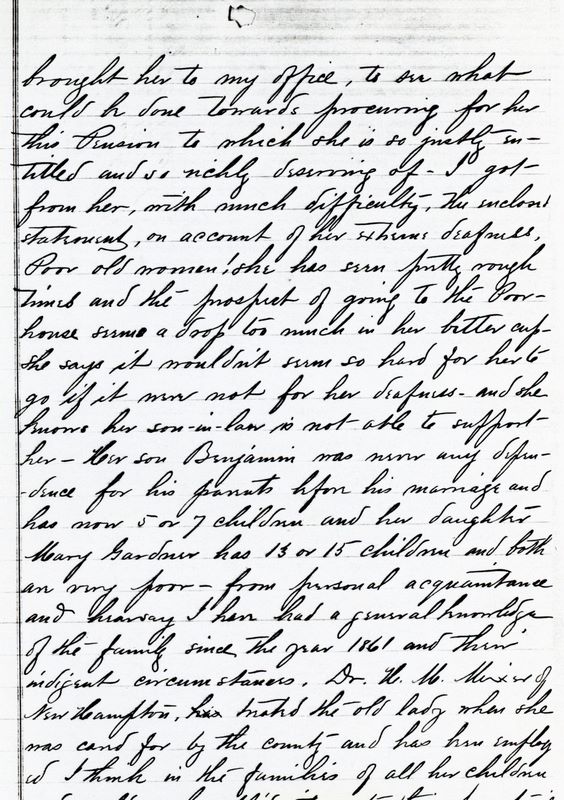 brought her to my office, to see what
could be done towards procuring for her
this Pension to which she is so justly en-
titled and so richly deserving of - I got
from her, with much difficulty, the enclosed
statement, on account of her extreme deafness,
Poor old woman! she has seen pretty rough
times and the prospect of going to the Poor-
house seems a drop too much in her bitter cup-
she says it wouldn't seem so hard for her to
go if it were not for her deafness - and she
knows her son-in-law is not able to support
her - Her son Benjamin was never any depen-
-dence for his parents before his marriage and
has now 5 or 7 children and her daughter
Mary Gardner has 13 or 15 children and both
are very poor - from personal acquaintance
and hearsay I have had a general knowledge
of the family since the year 1861 and their
indigent circumstances. Dr. H. M. of
New Hampton, has treated the old lady when she
was cared for by the county and has been employ
ed I think in the families of all her children